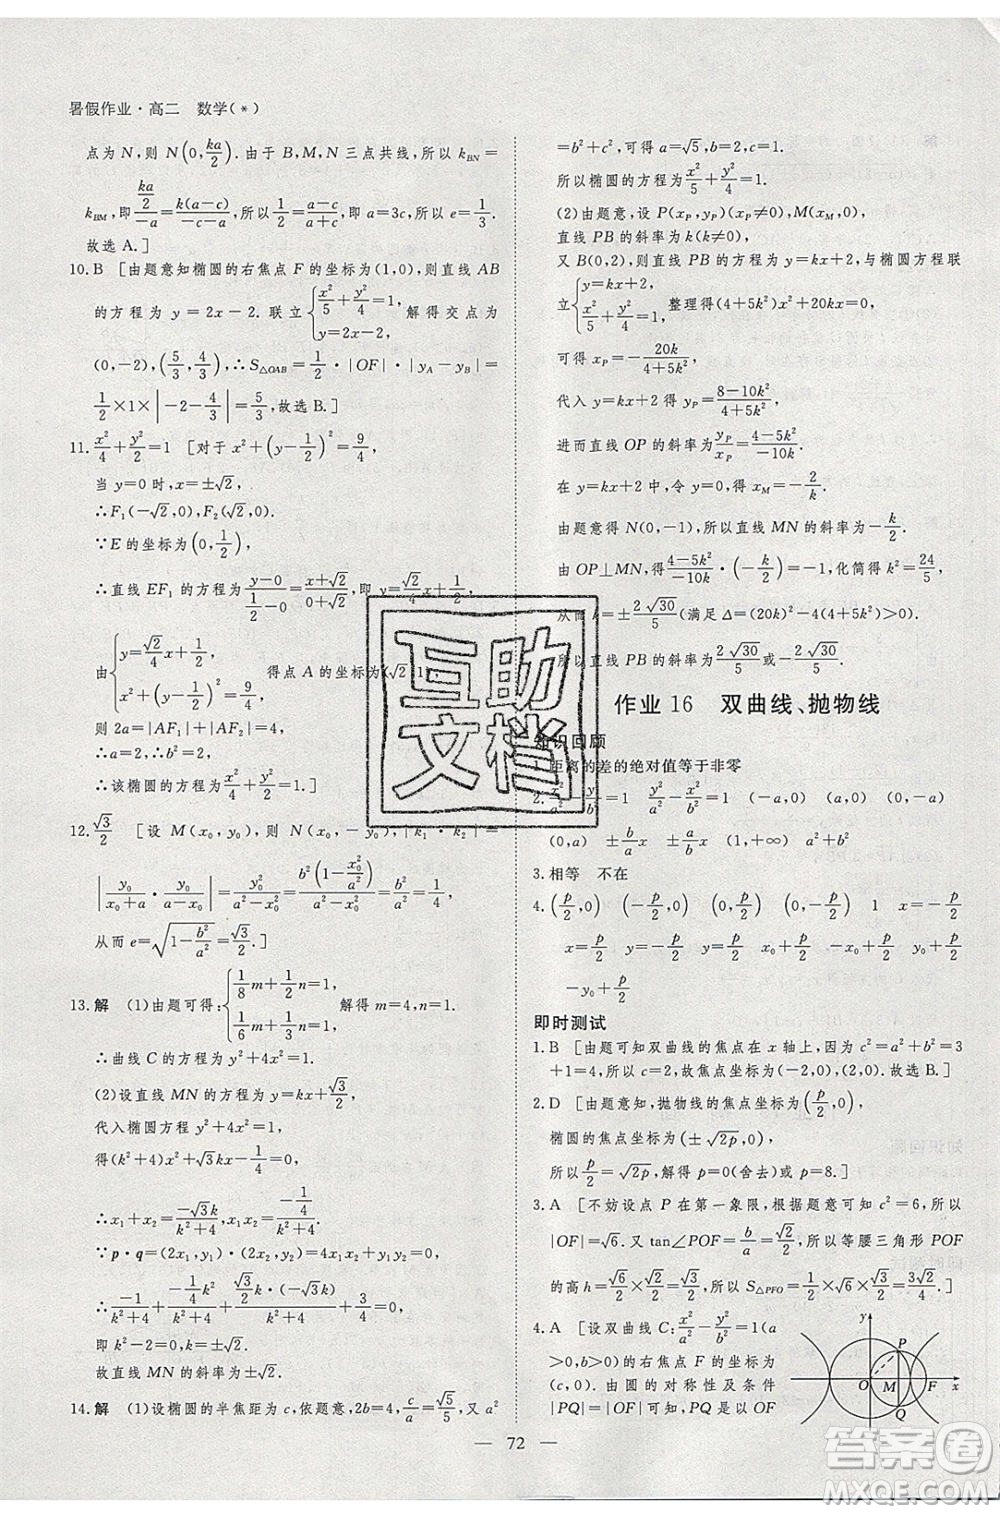 暑假作业·高二　数学(*)
点为 N,则 N(0, ka/2). 由于 B,M,N 三点共线,所以 k_BN=
k_BM,即 (ka/2)/(-a)=k(a-c)/(-c-a),所以 1/2=(a-c)/(a+c),即 a=3c,所以 e=1/3.
故选 A.]
10.B　[由题意知椭圆的右焦点 F 的坐标为(1,0),则直线 AB
的方程为 y=2x-2. 联立 {x²/5+y²/4=1, y=2x-2, 解得交点为
(0,-2),(5/3,4/3),∴S△OAB=1/2·|OF|·|y_A-y_B|=
1/2×1×|-2-4/3|=5/3,故选 B.]
11. x²/4+y²/2=1　[对于 x²+(y-1/2)²=9/4,
当 y=0 时,x=±√2,
∴F₁(-√2,0),F₂(√2,0).
∵E 的坐标为(0,1/2),
∴直线 EF₁ 的方程为 (y-0)/(1/2-0)=(x+√2)/(0+√2),即 y=√2/4 x+1/2.
由 {y=√2/4 x+1/2, x²+(y-1/2)²=9/4 得点 A 的坐标为(√2,1),
则 2a=|AF₁|+|AF₂|=4,
∴a=2,∴b²=2,
∴该椭圆的方程为 x²/4+y²/2=1.]
12. √3/2　[设 M(x₀,y₀),则 N(x₀,-y₀),|k₁·k₂|=
|y₀/(x₀+a)·y₀/(a-x₀)|=y₀²/(a²-x₀²)=b²(1-x₀²/a²)/(a²-x₀²)=b²/a²=1/4,
从而 e=√(1-b²/a²)=√3/2.]
13.解　(1)由题可得:{1/8 m+1/2 n=1, 1/6 m+1/3 n=1, 解得 m=4,n=1.
∴曲线 C 的方程为 y²+4x²=1.
(2)设直线 MN 的方程为 y=kx+√3/2,
代入椭圆方程 y²+4x²=1,
得(k²+4)x²+√3kx-1/4=0,
∴x₁+x₂=-√3k/(k²+4),x₁x₂=(-1/4)/(k²+4).
∵p·q=(2x₁,y₁)·(2x₂,y₂)=4x₁x₂+y₁y₂=0,
∴-1/(k²+4)+(-1/4 k²)/(k²+4)+(-3/2 k²)/(k²+4)+3/4=0,
即 k²-2=0,k=±√2.
故直线 MN 的斜率为±√2.
14.解　(1)设椭圆的半焦距为 c,依题意,2b=4,c/a=√5/5,又 a²
=b²+c²,可得 a=√5,b=2,c=1.
所以椭圆的方程为 x²/5+y²/4=1.
(2)由题意,设 P(x_P,y_P)(x_P≠0),M(x_M,0),
直线 PB 的斜率为 k(k≠0),
又 B(0,2),则直线 PB 的方程为 y=kx+2,与椭圆方程联
立 {y=kx+2, x²/5+y²/4=1, 整理得(4+5k²)x²+20kx=0,
可得 x_P=-20k/(4+5k²),
代入 y=kx+2 得 y_P=(8-10k²)/(4+5k²),
进而直线 OP 的斜率为 y_P/x_P=(4-5k²)/(-10k).
在 y=kx+2 中,令 y=0,得 x_M=-2/k.
由题意得 N(0,-1),所以直线 MN 的斜率为-k/2.
由 OP⊥MN,得 (4-5k²)/(-10k)·(-k/2)=-1,化简得 k²=24/5,
从而 k=±2√30/5(满足 Δ=(20k)²-4(4+5k²)>0).
所以直线 PB 的斜率为 2√30/5 或-2√30/5.
作业 16　双曲线、抛物线
知识回顾
1.距离的差的绝对值等于非零
2. x²/a²-y²/b²=1　y²/a²-x²/b²=1　(-a,0)　(a,0)　(0,-a)
(0,a)　±b/a x　±a/b x　a²+b²
3.相等　不在
4.(p/2,0)　(-p/2,0)　(0,p/2)　(0,-p/2)　1　x=-p/2
x=p/2　y=-p/2　y=p/2　x₀+p/2　-x₀+p/2　y₀+p/2
-y₀+p/2
即时测试
1.B　[由题可知双曲线的焦点在 x 轴上,因为 c²=a²+b²=3
+1=4,所以 c=2,故焦点坐标为(-2,0),(2,0).故选 B.]
2.D　[由题意知,抛物线的焦点坐标为(p/2,0),
椭圆的焦点坐标为(±√2p,0),
所以 p/2=√2p,解得 p=0(舍去)或 p=8.]
3.A　[不妨设点 P 在第一象限,根据题意可知 c²=6,所以
|OF|=√6. 又 tan∠POF=b/a=√2/2,所以等腰三角形 POF
的高 h=√6/2×√2/2=√3/2,所以 S△PFO=1/2×√6×√3/2=3√2/4.]
4.A　[设双曲线 C: x²/a²-y²/b²=1(a
>0,b>0)的右焦点 F 的坐标为
(c,0). 由圆的对称性及条件
|PQ|=|OF|可知,PQ 是以 OF
y
P
O
M
F
x
Q
— 72 —
互助
文档
答案卷
MXQE.COM